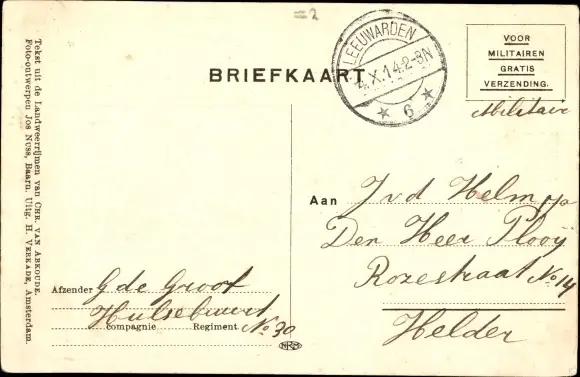 = 2
BRIEFKAART
LEEUWARDEN
4.X.14.2-8N
* 6 *
VOOR
MILITAIREN
GRATIS
VERZENDING.
Militair
Aan J v d Helm op
Den Heer Plooij
Rozestraat No 14
Helder
Afzender G de Groot
Hulsebuurt
Compagnie Regiment. No 30
Tekst uit de Landweerrijmen van CHR. VAN ABKOUDE.
Foto-ontwerpen JOS NUSS, Baarn. Uitg. H. VERKADE, Amsterdam.